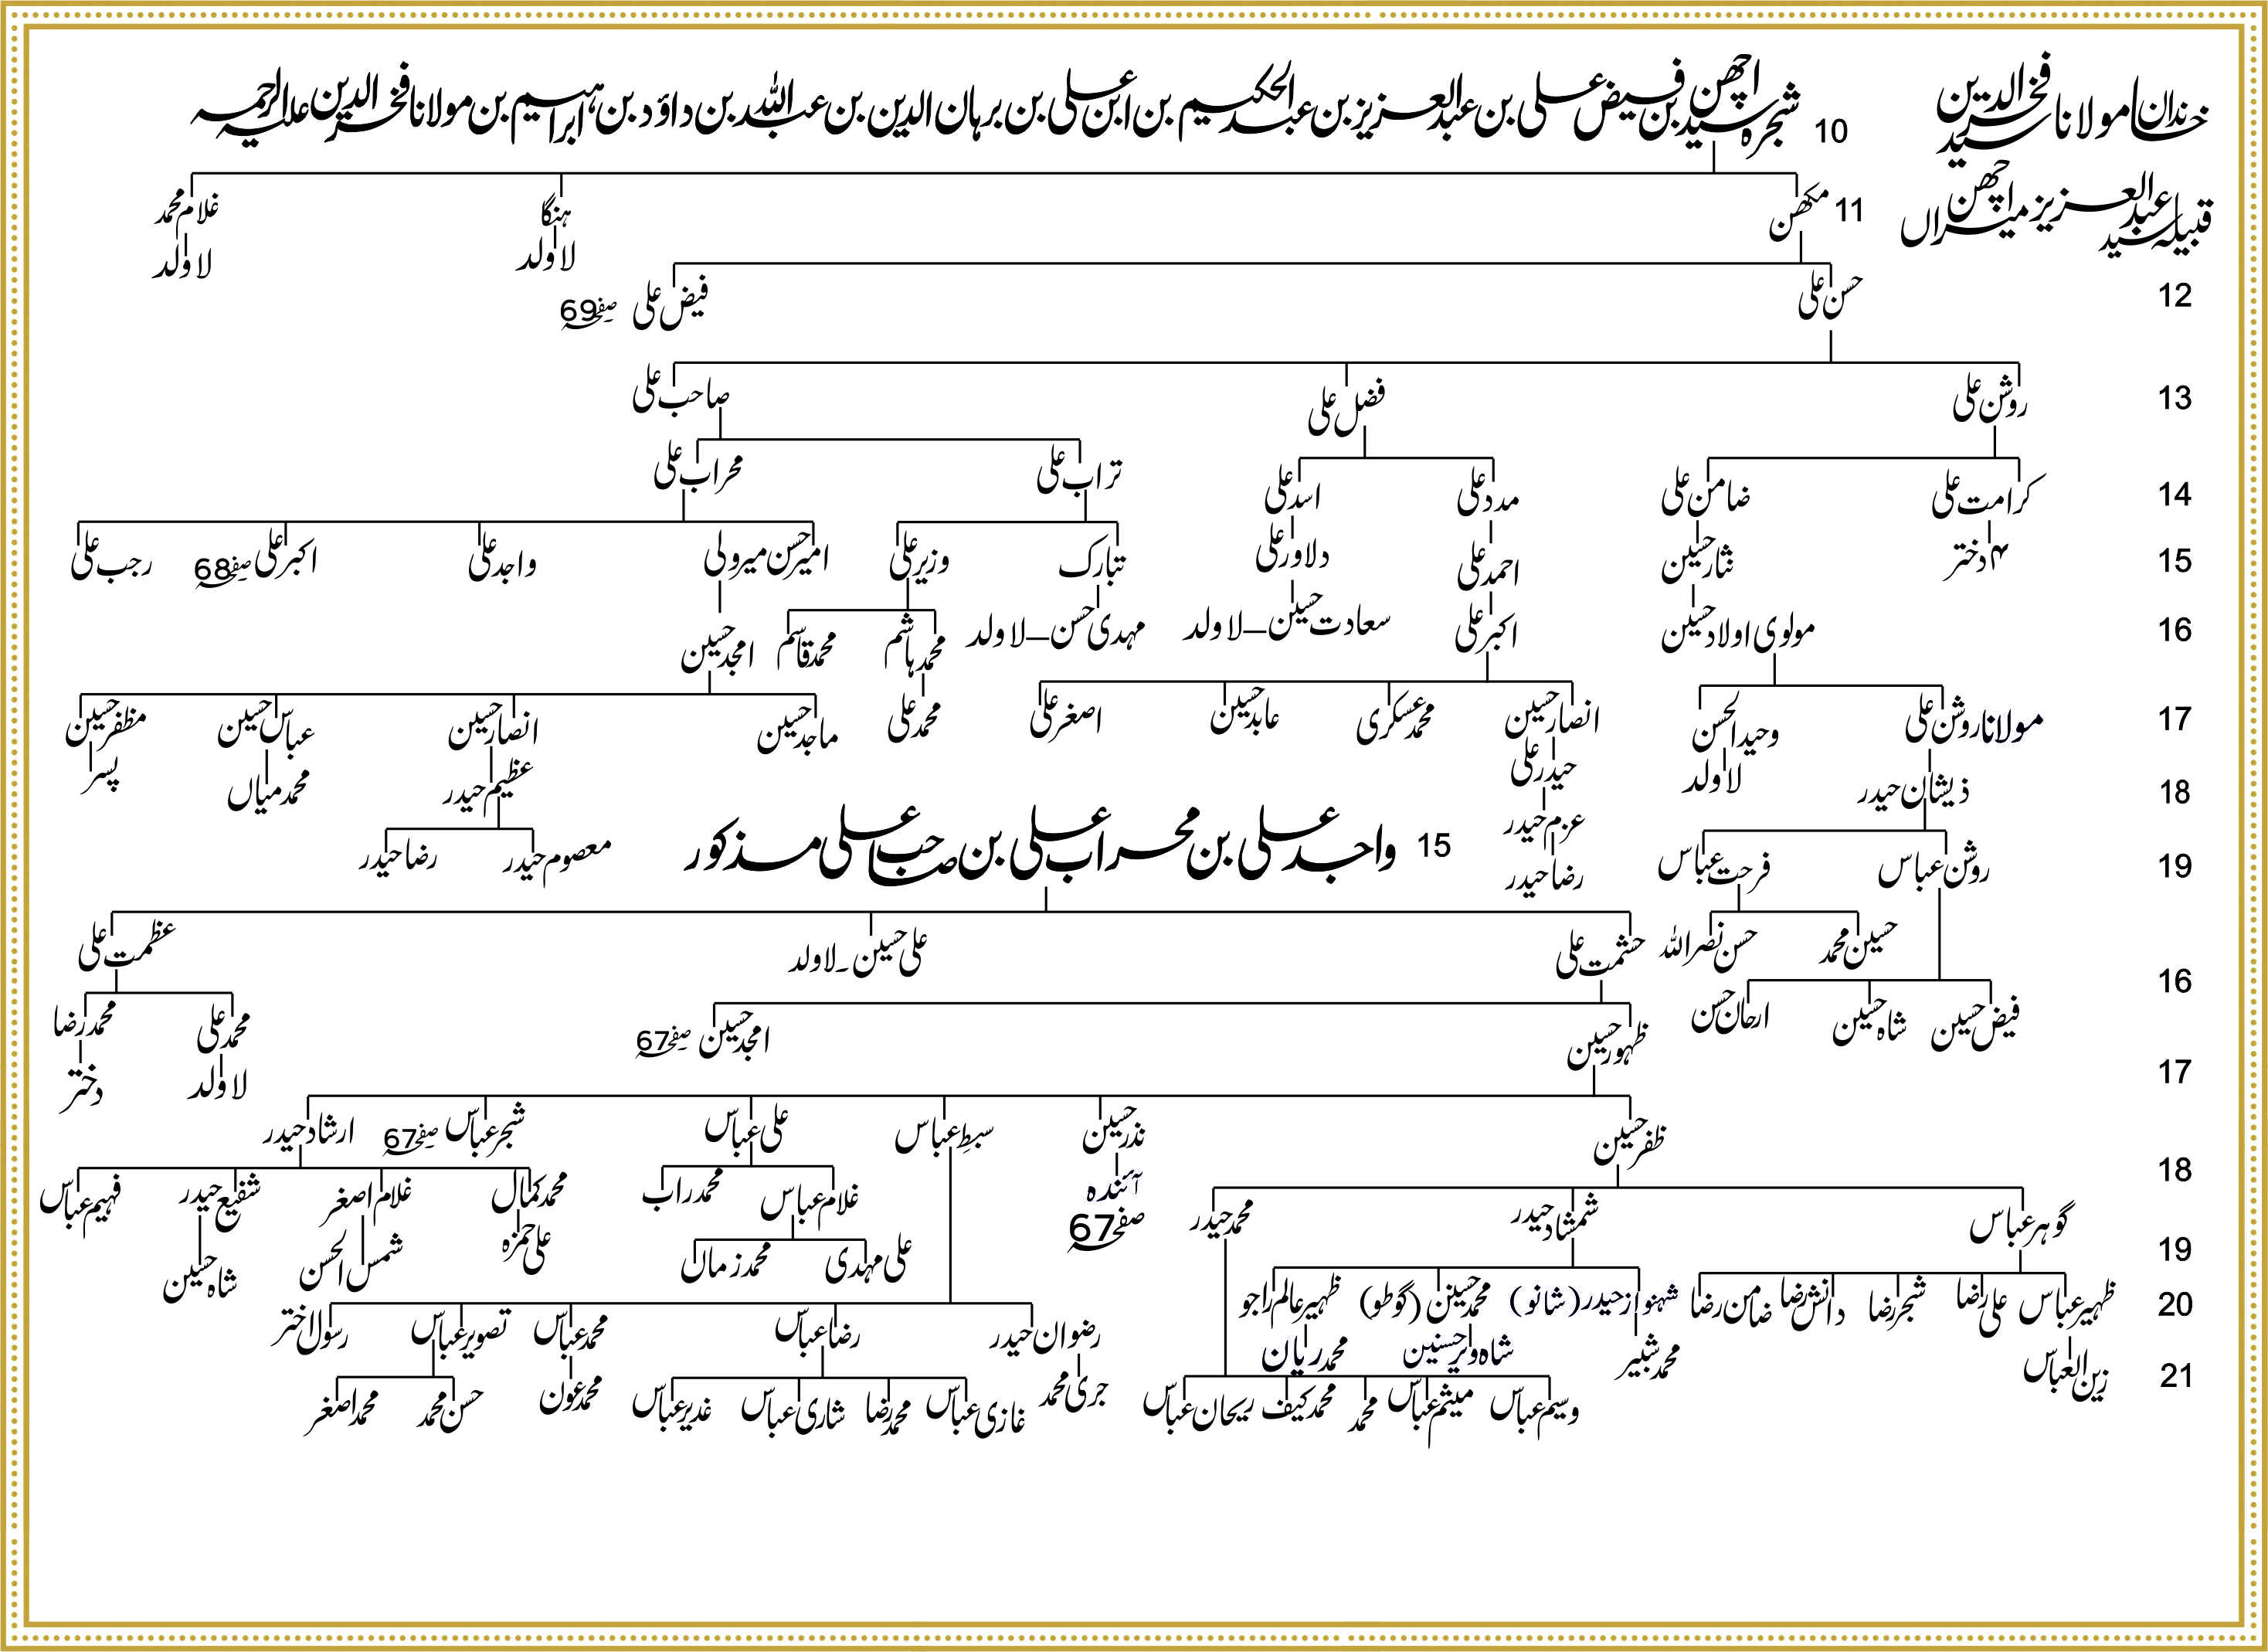 خاندان مولانا سید فخرالدین
قبیلہ سید عبدالعزیز میراں اچھن
10 شجرہ سید اچھن بن فیض علی بن عبدالعزیز بن عبدالحکیم بن ابن علی بن برہان الدین بن عبداللہ بن داؤد بن ابراہیم بن مولانا فخرالدین علیہ الرحمہ
11 مکھن ہنگا غلام محمد
لاولد لاولد
12 حسن علی فیض علی صفحہ 69
13 روشن علی فضل علی صاحب علی
14 کرامت علی ضامن علی مدد علی اسد علی تراب علی محراب علی
15 ۴ دختر نثار حسین احمد علی دلاور علی تبارک وزیر علی امیر حسن میرولی واجد علی اکبر علی صفحہ 68 رجب علی
16 مولوی اولاد حسین اکبر علی سعادت حسین – لاولد مہدی حسن – لاولد محمد ہاشم محمد قاسم امجد حسین
17 مولانا روشن علی وحید الحسن انصار حسین محمد عسکری عابد حسین اصغر علی محمد علی ماجد حسین انصار حسین عباس حسین مظفر حسین
18 ذیشان حیدر لاولد حیدر علی عظیم حیدر محمد میاں پسر
عزم حیدر
19 روشن عباس فرحت عباس رضا حیدر معصوم حیدر رضا حیدر
حسین محمد حسن نصراللہ
فیض حسین شاہ حسین ارحان حسن
15 واجد علی بن محراب علی بن صاحب علی مذکور
16 حشمت علی علی حسین ۔ لاولد عظمت علی
17 ظہور حسین امجد حسین صفحہ 67 محمد علی محمد رضا
لاولد دختر
18 ظفر حسین نذر حسین سبط عباس علی عباس شجر عباس صفحہ 67 ارشاد حیدر
آئندہ
صفحہ 67
19 گوہر عباس شمشاد حیدر محمد حیدر غلام عباس محمد راب محمد کمال غلام اصغر شفیع حیدر فہیم عباس
علی مہدی محمد زمان علی حمزہ شمس الحسن شاہ حسین
20 ظہیر عباس علی رضا شجر رضا دانش رضا ضامن رضا شہنواز حیدر (شانو) محمد حسین (گوطو) ظہیر عالم راجو رضوان حیدر رضا عباس محمد عباس تصویر عباس رسول اختر
21 زین العباس محمد شبیر شاہ ویر حسنین محمد ریان
وسیم عباس میثم عباس محمد محمد کیف ریحان عباس جری محمد غازی عباس محمد رضا شاری عباس غدیر عباس محمد عون حسن محمد محمد اصغر